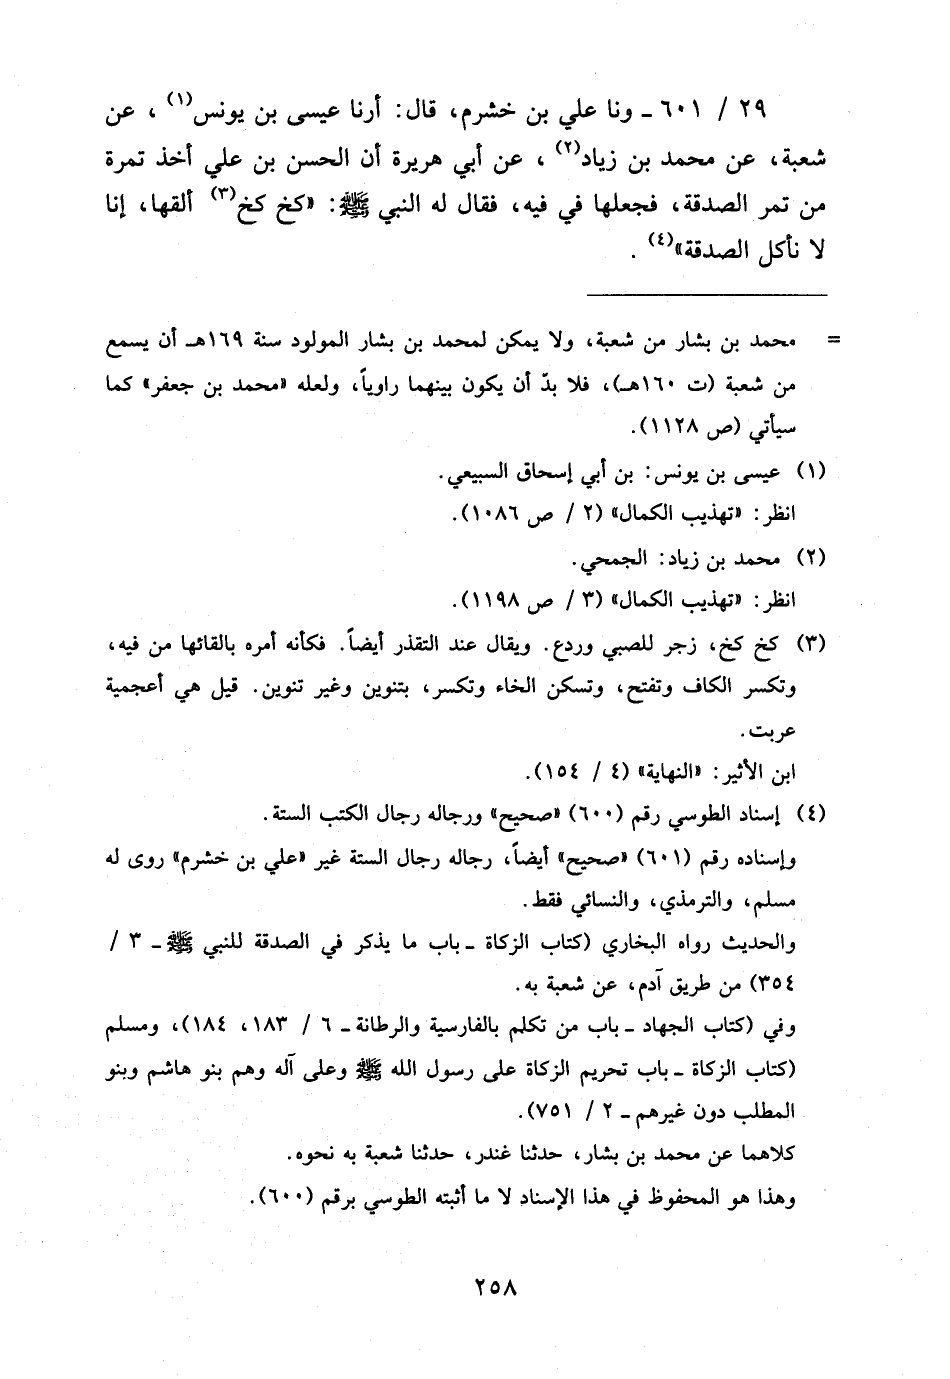 ٢٩ / ٦٠١ ـ ونا علي بن خشرم، قال: أرنا عيسى بن يونس(١) ، عن
شعبة، عن محمد بن زياد(٢) ، عن أبي هريرة أن الحسن بن علي أخذ تمرة
من تمر الصدقة، فجعلها في فيه، فقال له النبي ﷺ: «كخ كخ(٣) ألقها، إنا
لا نأكل الصدقة»(٤) .
= محمد بن بشار من شعبة، ولا يمكن لمحمد بن بشار المولود سنة ١٦٩هـ أن يسمع
من شعبة (ت ١٦٠هـ)، فلا بدّ أن يكون بينهما راوياً، ولعله «محمد بن جعفر» كما
سيأتي (ص ١١٢٨).
(١) عيسى بن يونس: بن أبي إسحاق السبيعي.
انظر: «تهذيب الكمال» (٢ / ص ١٠٨٦).
(٢) محمد بن زياد: الجمحي.
انظر: «تهذيب الكمال» (٣ / ص ١١٩٨).
(٣) كخ كخ، زجر للصبي وردع. ويقال عند التقذر أيضاً. فكأنه أمره بالقائها من فيه،
وتكسر الكاف وتفتح، وتسكن الخاء وتكسر، بتنوين وغير تنوين. قيل هي أعجمية
عربت.
ابن الأثير: «النهاية» (٤ / ١٥٤).
(٤) إسناد الطوسي رقم (٦٠٠) «صحيح» ورجاله رجال الكتب الستة.
وإسناده رقم (٦٠١) «صحيح» أيضاً، رجاله رجال الستة غير «علي بن خشرم» روى له
مسلم، والترمذي، والنسائي فقط.
والحديث رواه البخاري (كتاب الزكاة ـ باب ما يذكر في الصدقة للنبي ﷺ ـ ٣ /
٣٥٤) من طريق آدم، عن شعبة به.
وفي (كتاب الجهاد ـ باب من تكلم بالفارسية والرطانة ـ ٦ / ١٨٣، ١٨٤)، ومسلم
(كتاب الزكاة ـ باب تحريم الزكاة على رسول الله ﷺ وعلى آله وهم بنو هاشم وبنو
المطلب دون غيرهم ـ ٢ / ٧٥١).
كلاهما عن محمد بن بشار، حدثنا غندر، حدثنا شعبة به نحوه.
وهذا هو المحفوظ في هذا الإسناد لا ما أثبته الطوسي برقم (٦٠٠).
٢٥٨